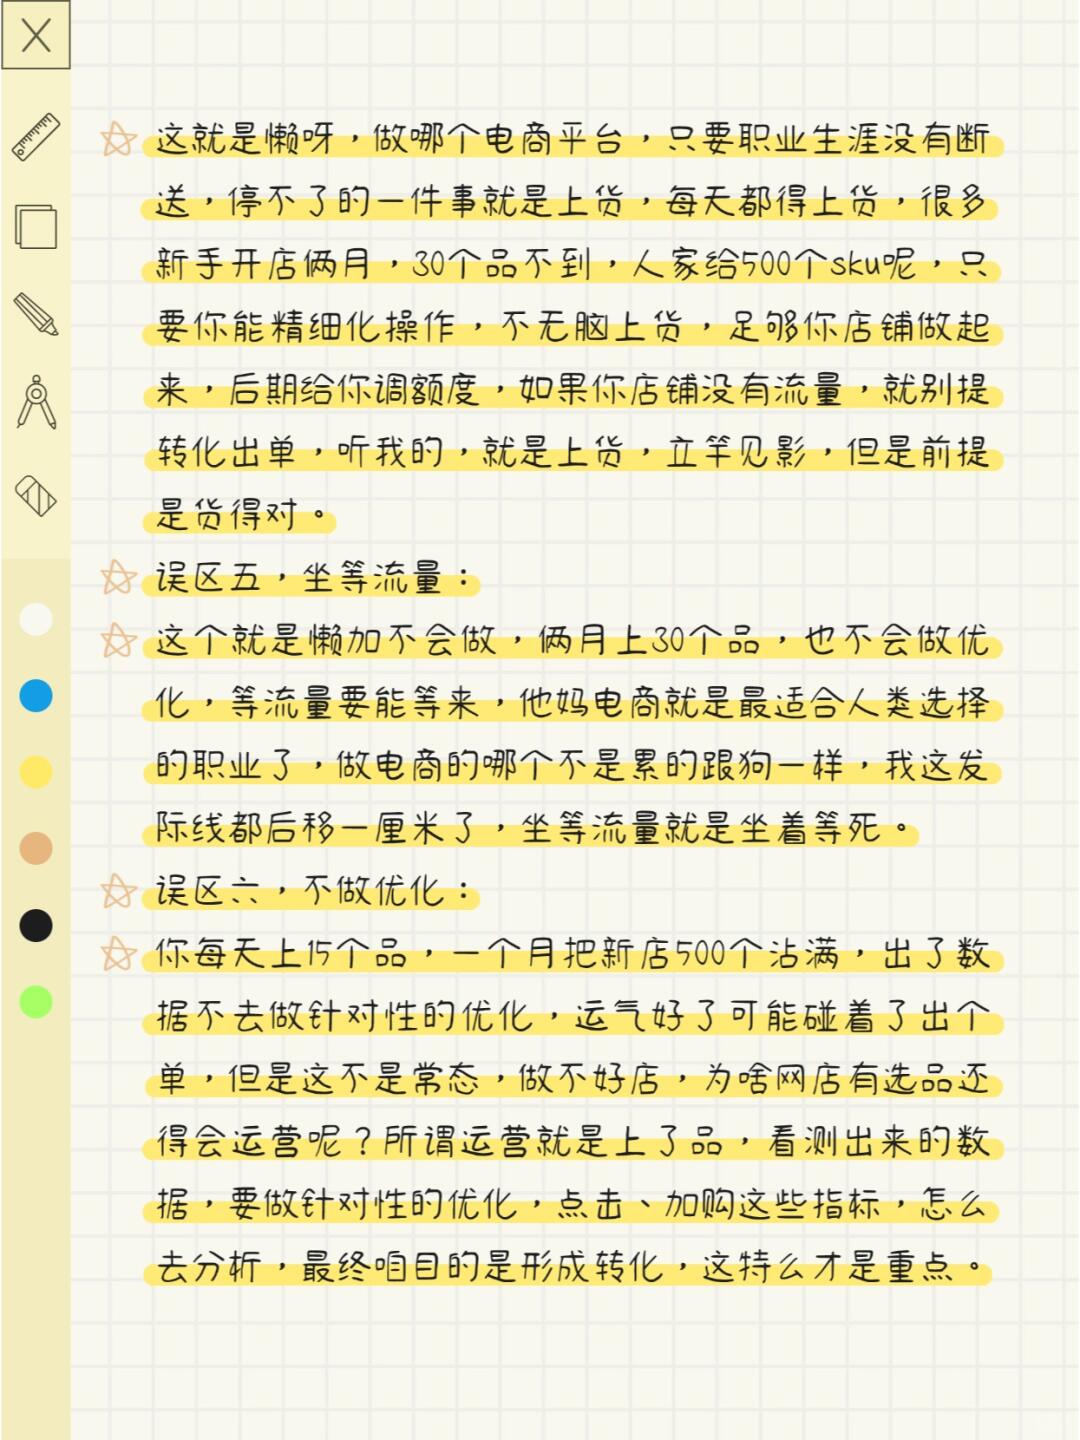 这就是懒呀，做哪个电商平台，只要职业生涯没有断
送，停不了的一件事就是上货，每天都得上货，很多
新手开店俩月，30个品不到，人家给500个sku呢，只
要你能精细化操作，不无脑上货，足够你店铺做起
来，后期给你调额度，如果你店铺没有流量，就别提
转化出单，听我的，就是上货，立竿见影，但是前提
是货得对。
误区五，坐等流量：
这个就是懒加不会做，俩月上30个品，也不会做优
化，等流量要能等来，他妈电商就是最适合人类选择
的职业了，做电商的哪个不是累的跟狗一样，我这发
际线都后移一厘米了，坐等流量就是坐着等死。
误区六，不做优化：
你每天上15个品，一个月把新店500个沾满，出了数
据不去做针对性的优化，运气好了可能碰着了出个
单，但是这不是常态，做不好店，为啥网店有选品还
得会运营呢？所谓运营就是上了品，看测出来的数
据，要做针对性的优化，点击、加购这些指标，怎么
去分析，最终咱目的是形成转化，这特么才是重点。